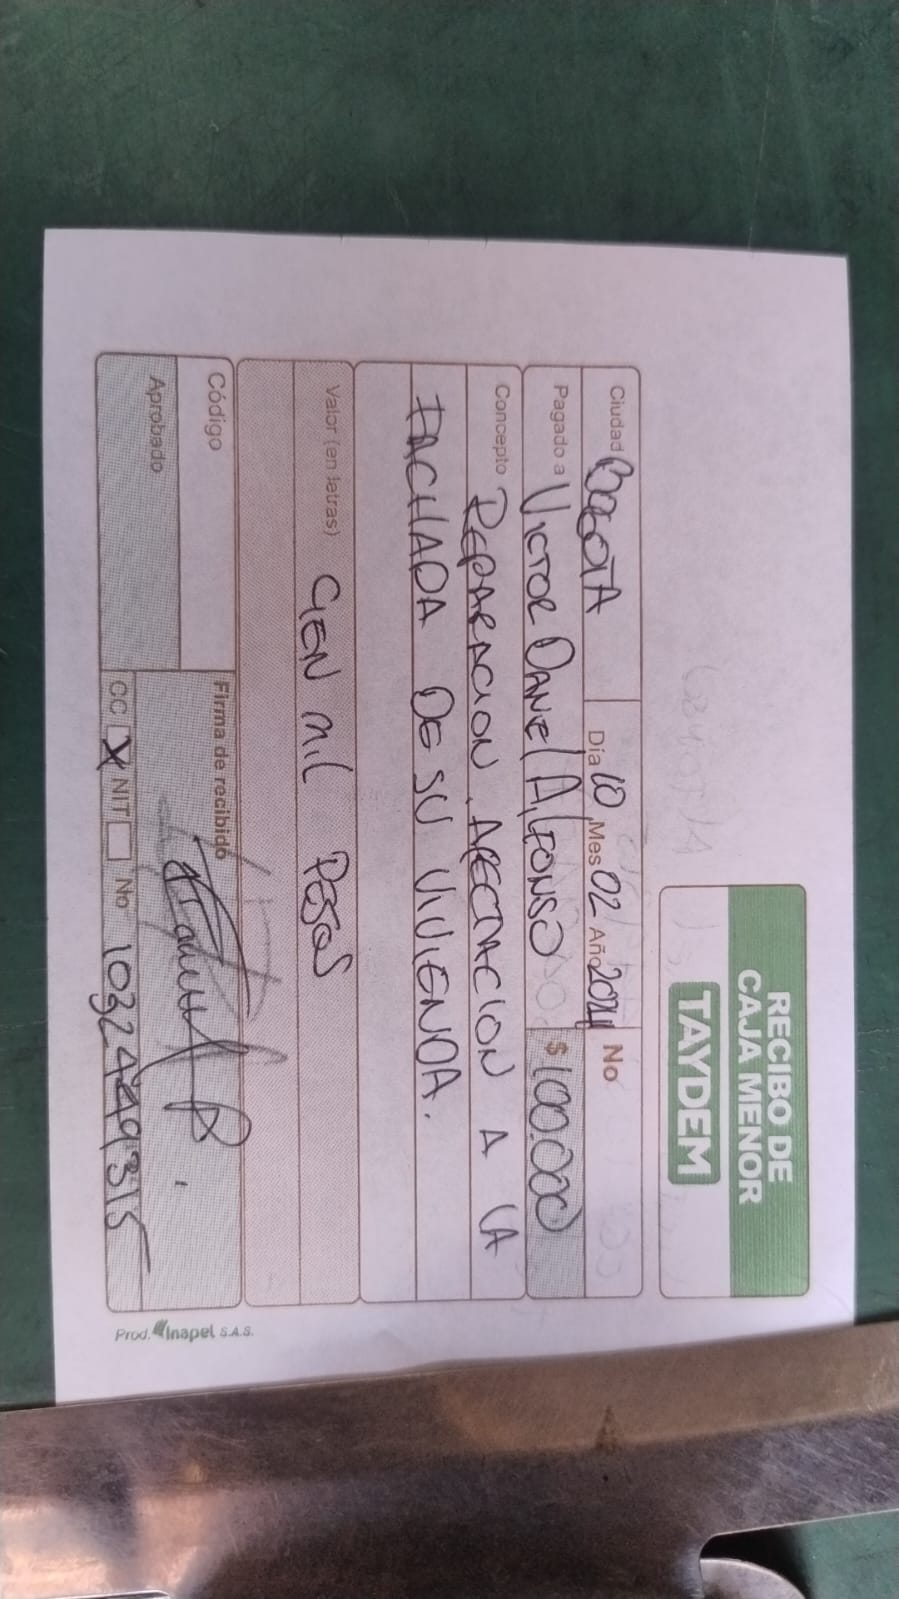 RECIBO DE
CAJA MENOR
TAYDEM
Ciudad BOGOTA Día 10 Mes 02 Año 2024 No
Pagado a VICTOR DANIEL ALFONSO $ 100.000
Concepto REPARACION AFECTACION A LA
FACHADA DE SU VIVIENDA.
Valor (en letras) CIEN MIL PESOS
Código
Firma de recibido
Aprobado
CC X NIT No 1032449315
Prod. Inapel S.A.S.